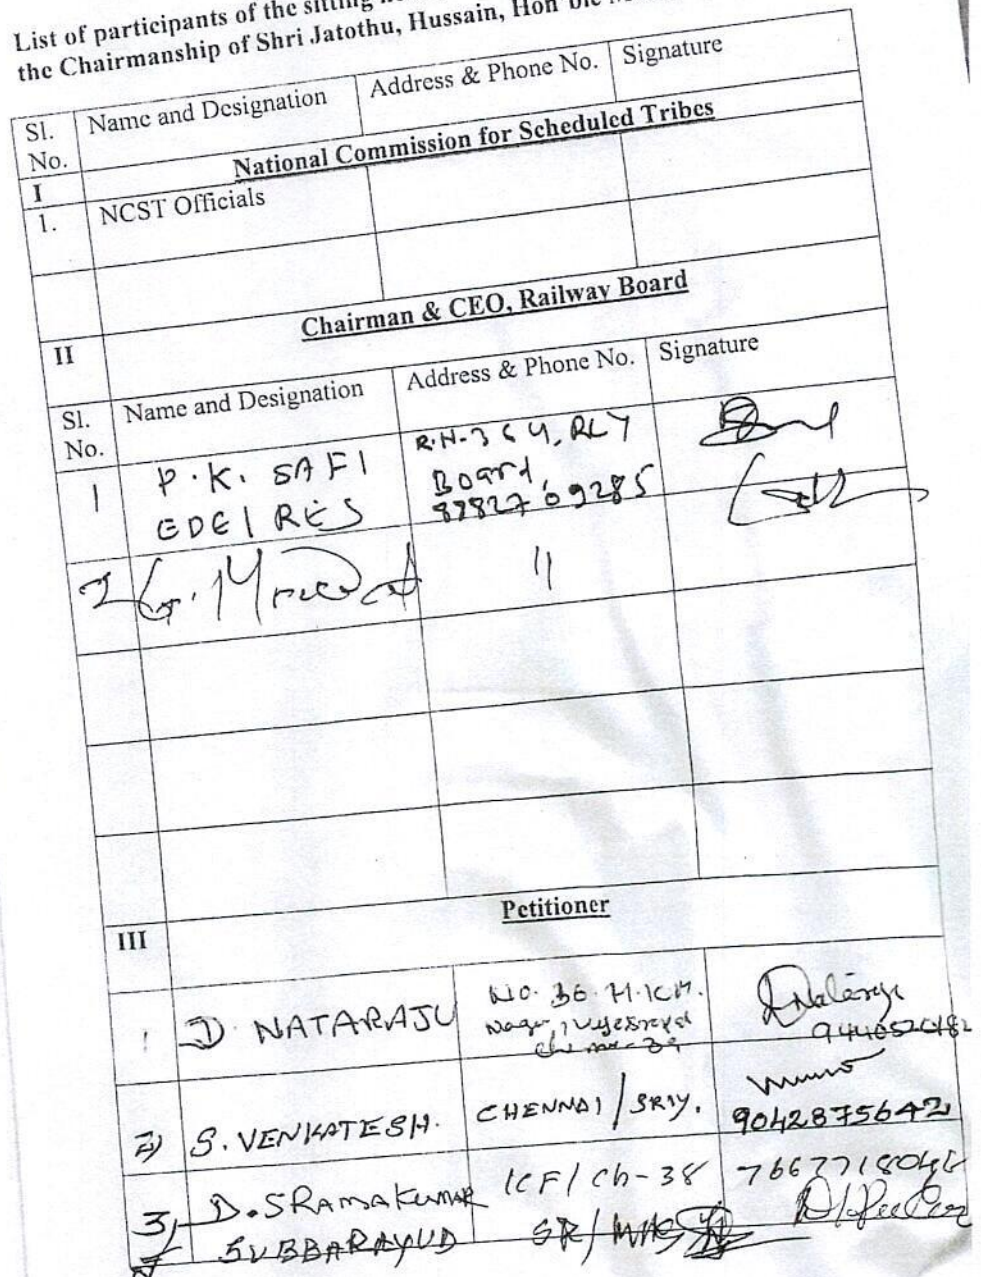 List of participants of the sitting
the Chairmanship of Shri Jatothu, Hussain, Hon'ble
Sl. No. Name and Designation Address & Phone No. Signature
I National Commission for Scheduled Tribes
1. NCST Officials
II Chairman & CEO, Railway Board
Sl. No. Name and Designation Address & Phone No. Signature
1 P. K. SAFI R.N-364, RLY
EDE/RES Board,
8782709285
2 G. "
III Petitioner
1 D. NATARAJU NO. 36
Nagar,
2) S. VENKATESH. CHENNAI / SRly. 9042875642
3) D. SRamaKumar ICF/Ch-38
SUBBARAYUD SR/MAS